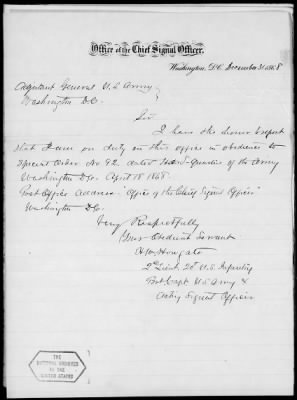 Office of the Chief Signal Officer,
Washington, D.C. December 31, 1868
Adjutant General U.S. Army
Washington D.C.
Sir
I have the honor to report
that I am on duty in this office in obedience to
Special Order No 92. dated Head Quarters of the Army
Washington D.C. April 18" 1868.
Post Office Address. "Office of the Chief Signal Officer"
Washington D.C.
Very Respectfully
Your Obedient Servant
H. W. Howgate
2d Lieut. 20" U.S. Infantry
Bvt Capt. U.S. Army &
Actg Signal Officer
THE
NATIONAL ARCHIVES
OF THE
UNITED STATES